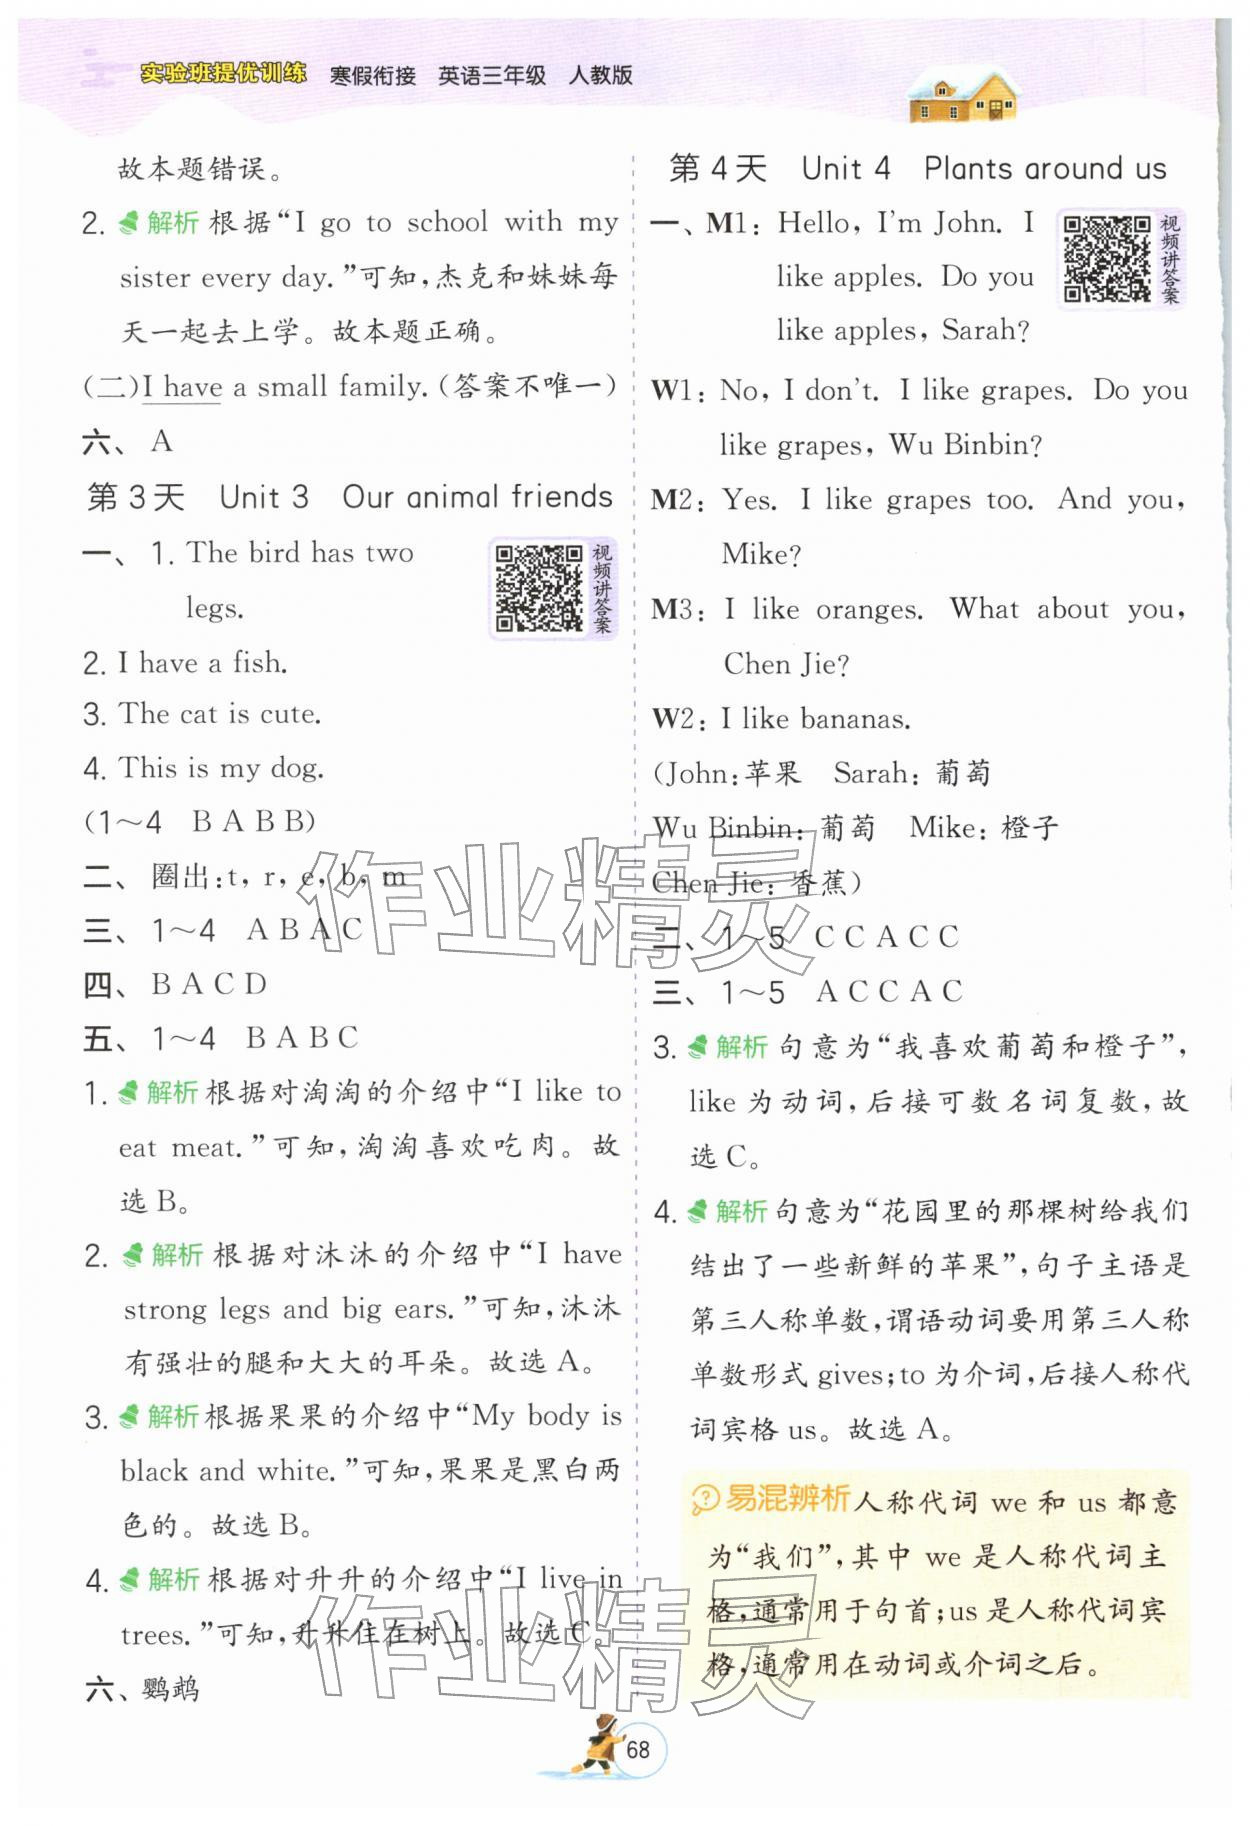 实验班提优训练 寒假衔接 英语三年级 人教版
故本题错误。
2. 解析 根据“I go to school with my
sister every day.”可知,杰克和妹妹每
天一起去上学。故本题正确。
(二)I have a small family.(答案不唯一)
六、 A
第3天 Unit 3 Our animal friends
一、 1. The bird has two
legs.
视频讲答案
2. I have a fish.
3. The cat is cute.
4. This is my dog.
(1～4 B A B B)
二、 圈出:t, r, e, b, m
三、 1～4 A B A C
四、 B A C D
五、 1～4 B A B C
1. 解析 根据对淘淘的介绍中“I like to
eat meat.”可知,淘淘喜欢吃肉。故
选 B。
2. 解析 根据对沐沐的介绍中“I have
strong legs and big ears.”可知,沐沐
有强壮的腿和大大的耳朵。故选 A。
3. 解析 根据果果的介绍中“My body is
black and white.”可知,果果是黑白两
色的。故选 B。
4. 解析 根据对升升的介绍中“I live in
trees.”可知,升升住在树上。故选 C。
六、鹦鹉
第4天 Unit 4 Plants around us
一、M1: Hello, I'm John. I
like apples. Do you
like apples, Sarah?
视频讲答案
W1: No, I don't. I like grapes. Do you
like grapes, Wu Binbin?
M2: Yes. I like grapes too. And you,
Mike?
M3: I like oranges. What about you,
Chen Jie?
W2: I like bananas.
(John:苹果 Sarah:葡萄
Wu Binbin:葡萄 Mike:橙子
Chen Jie:香蕉)
二、 1～5 C C A C C
三、 1～5 A C C A C
3. 解析 句意为“我喜欢葡萄和橙子”,
like 为动词,后接可数名词复数,故
选 C。
4. 解析 句意为“花园里的那棵树给我们
结出了一些新鲜的苹果”,句子主语是
第三人称单数,谓语动词要用第三人称
单数形式 gives;to 为介词,后接人称代
词宾格 us。故选 A。
易混辨析 人称代词 we 和 us 都意
为“我们”,其中 we 是人称代词主
格,通常用于句首;us 是人称代词宾
格,通常用在动词或介词之后。
作业精灵
作业精灵
68